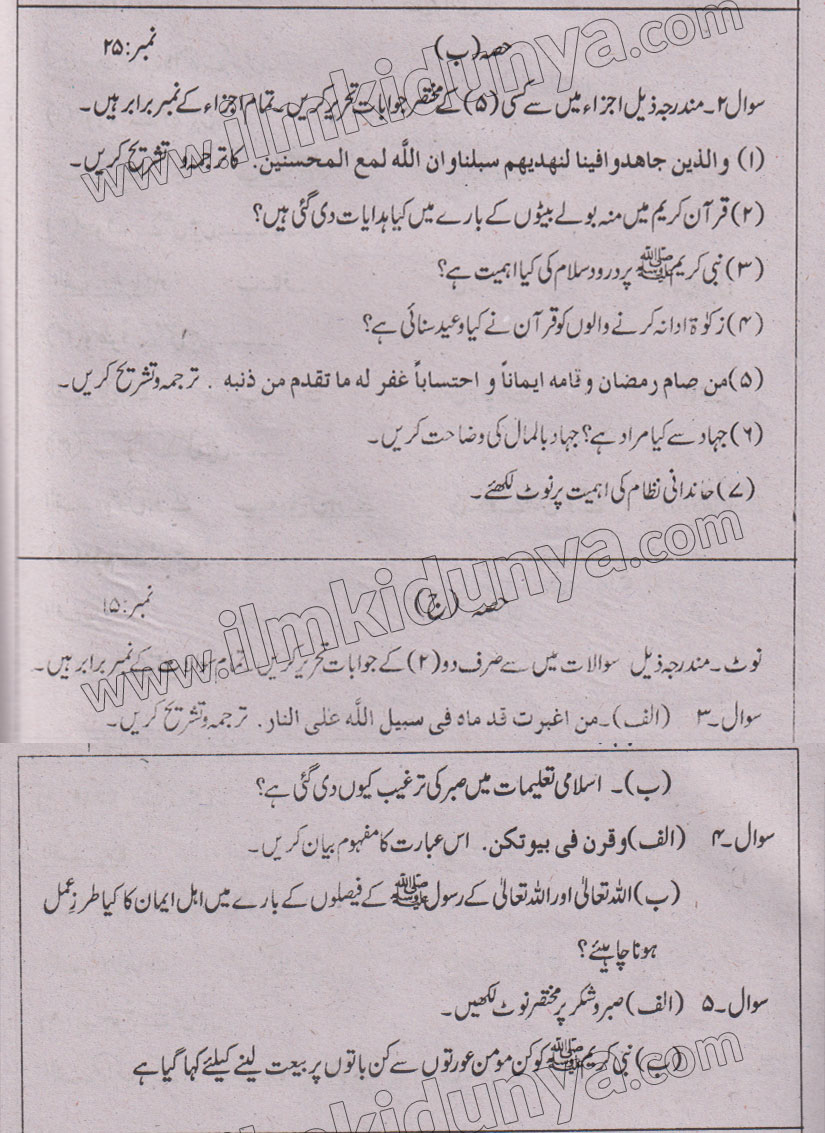 حصہ (ب) نمبر: ۲۵
سوال ۲۔ مندرجہ ذیل اجزاء میں سے کسی (۵) کے مختصر جوابات تحریر کریں۔ تمام اجزاء کے نمبر برابر ہیں۔
(۱) والذین جاھدوا فینا لنھدیھم سبلنا وان اللہ لمع المحسنین. کا ترجمہ و تشریح کریں۔
(۲) قرآن کریم میں منہ بولے بیٹوں کے بارے میں کیا ہدایات دی گئی ہیں؟
(۳) نبی کریم ﷺ پر درود سلام کی کیا اہمیت ہے؟
(۴) زکوٰۃ ادا نہ کرنے والوں کو قرآن نے کیا وعید سنائی ہے؟
(۵) من صام رمضان وقامہ ایماناً و احتساباً غفر لہ ما تقدم من ذنبہ . ترجمہ و تشریح کریں۔
(۶) جہاد سے کیا مراد ہے؟ جہاد بالمال کی وضاحت کریں۔
(۷) خاندانی نظام کی اہمیت پر نوٹ لکھئے۔
حصہ (ج) نمبر: ۱۵
نوٹ۔ مندرجہ ذیل سوالات میں سے صرف دو (۲) کے جوابات تحریر کریں تمام سوالات کے نمبر برابر ہیں۔
سوال۔۳ (الف)۔ من اغبرت قدماہ فی سبیل اللہ علی النار. ترجمہ و تشریح کریں۔
(ب)۔ اسلامی تعلیمات میں صبر کی ترغیب کیوں دی گئی ہے؟
سوال۔۴ (الف) وقرن فی بیوتکن. اس عبارت کا مفہوم بیان کریں۔
(ب) اللہ تعالیٰ اور اللہ تعالیٰ کے رسول ﷺ کے فیصلوں کے بارے میں اہل ایمان کا کیا طرزِ عمل
ہونا چاہیئے؟
سوال۔۵ (الف) صبر و شکر پر مختصر نوٹ لکھیں۔
(ب) نبی کریم ﷺ کو کن مومن عورتوں سے کن باتوں پر بیعت لینے کیلئے کہا گیا ہے
www.ilmkidunya.com
www.ilmkidunya.com
www.ilmkidunya.com